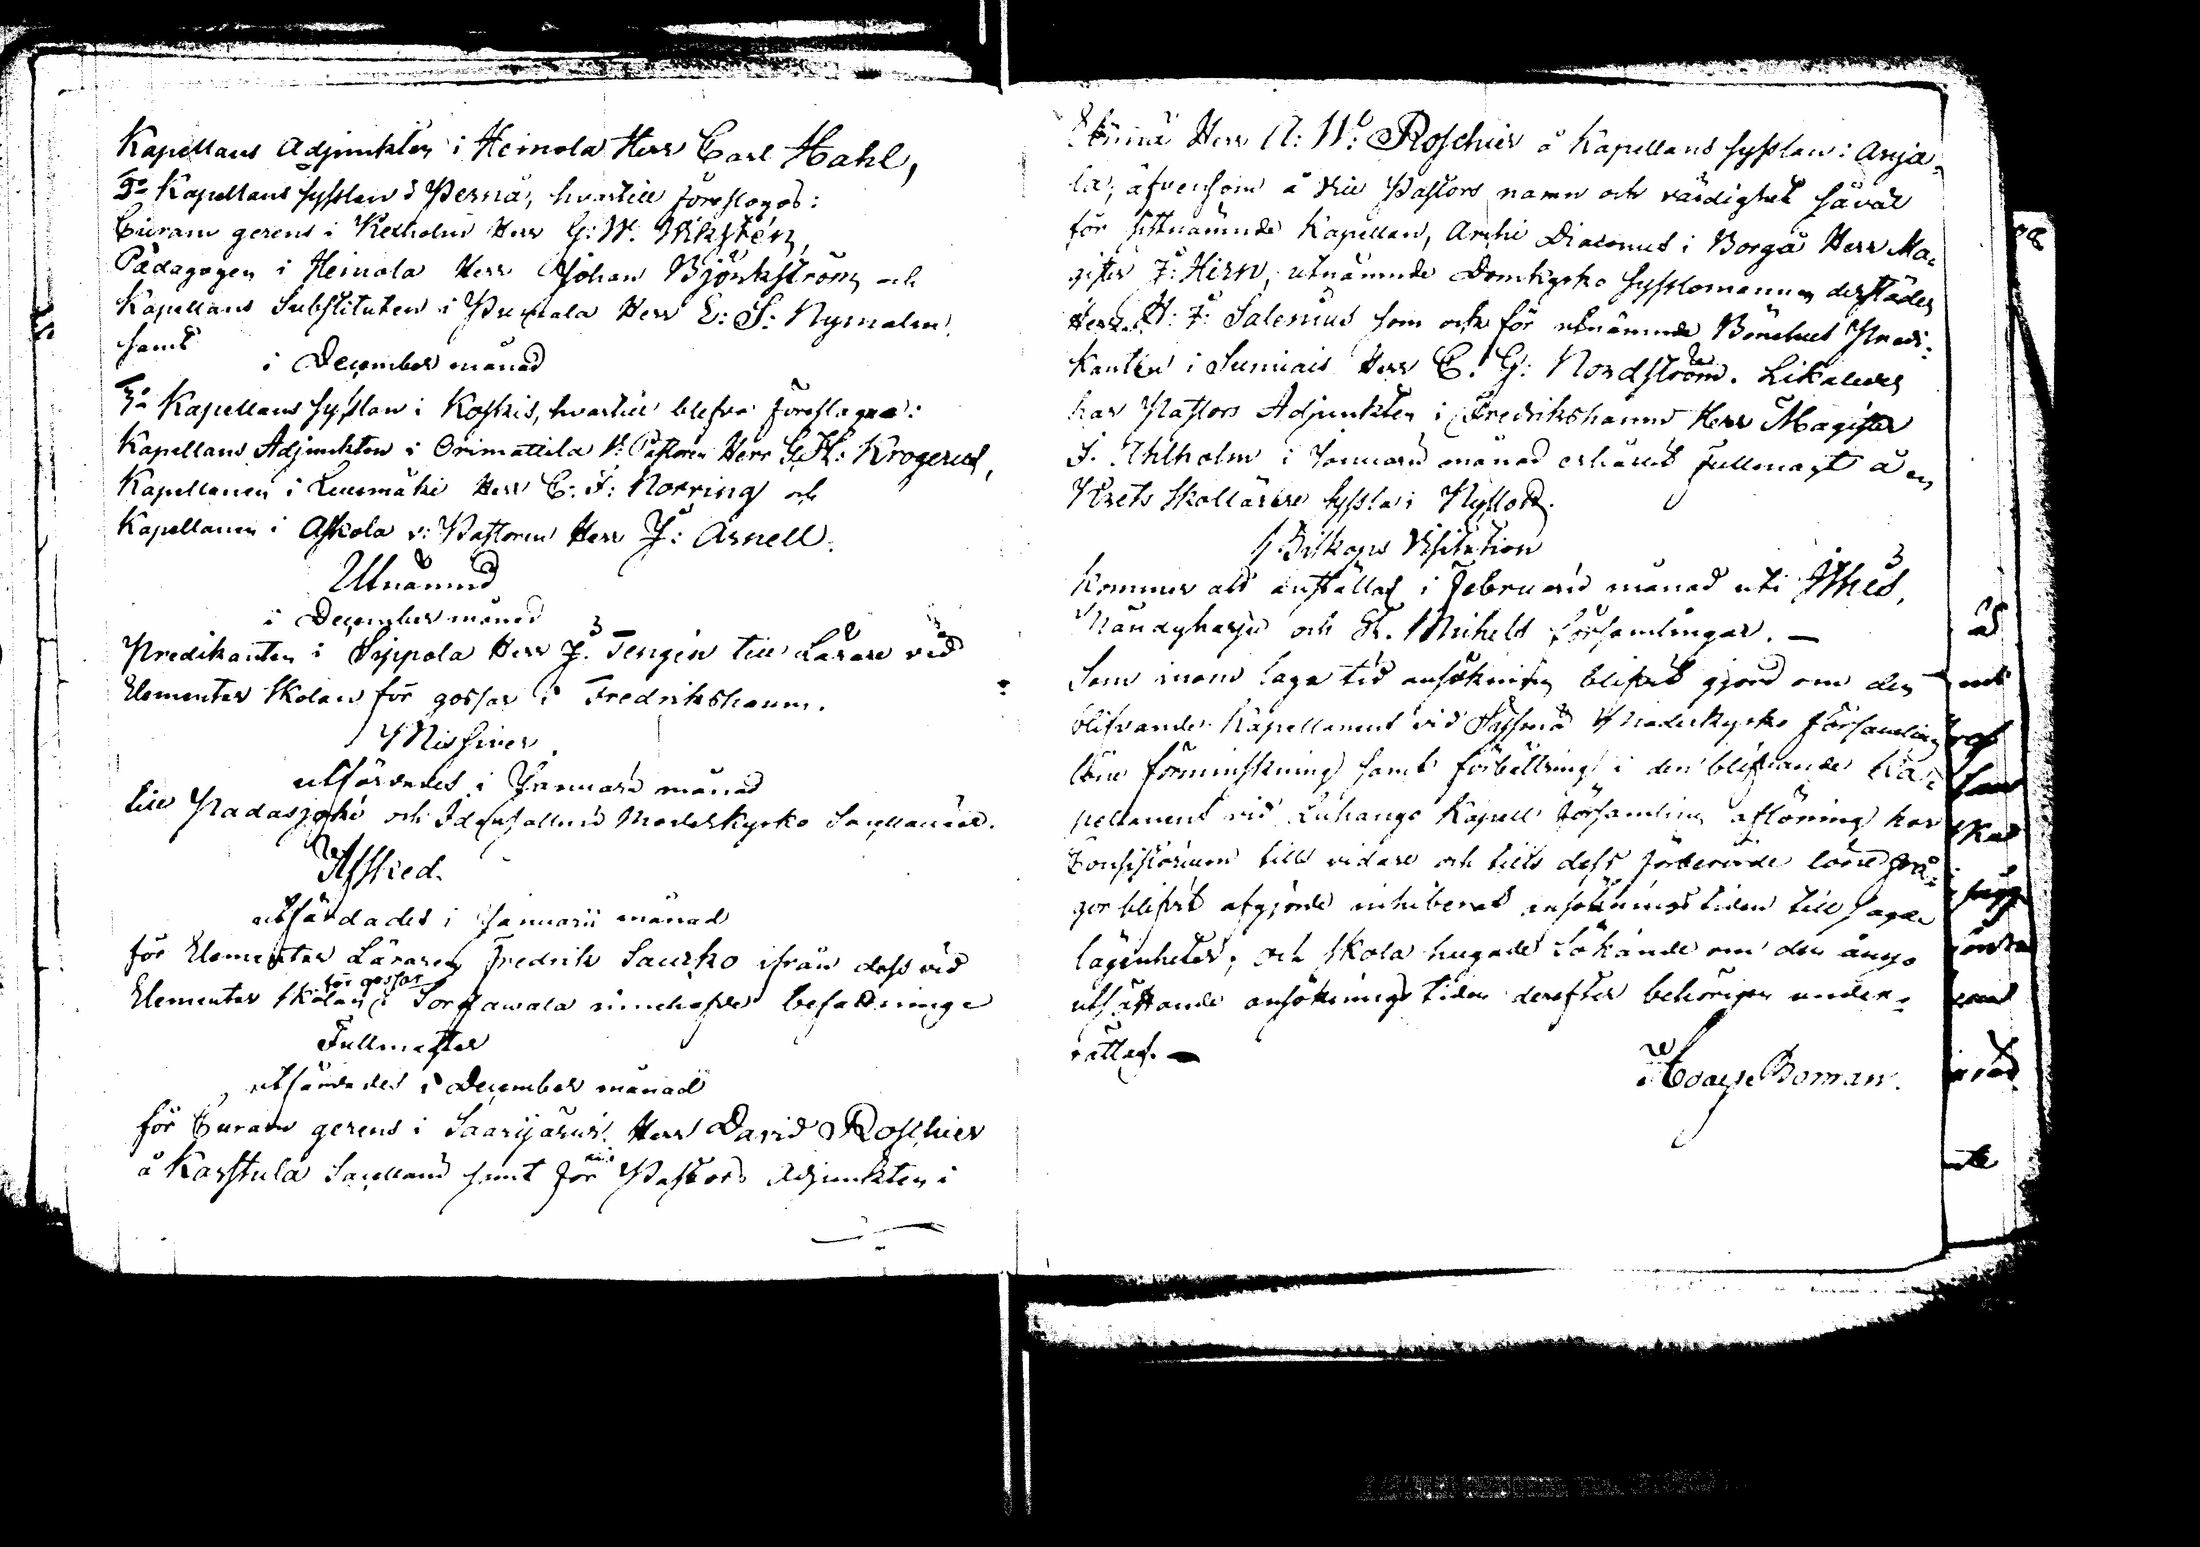 Kapellans Adjunkten i Heinola Herr Carl Hahl,
3o Kapellans sysslan i Perna, hvartill föreslogos:
Curam gerens i Kexholm Herr G: W. Wikstén,
Pädagogen i Heinola Herr Johan Björkström och
Kapellans Substituten i Pumala Herr E: S: Nymalm.
samt
i December månad
3o Kapellans sysslan i Koskis, hvartill blefvo föreslagna:
Kapellans Adjunkten i Orimattila V: Pastoren Herr G. H: Krogerus,
Kapellanen i Luumäki Herr C: F: Norring och
Kapellanen i Askola v: Pastoren Herr J: Arnell.
Utnämnd
i December månad
Predikanten i Sippola Herr J. Tengén till Lärare vid
Elementar skolan för gossar i Fredrikshamn.
Missiver
utfärdades i Januari månad
till Padasjoki och Idensalmi Moderkyrko Sacellanier.
Afsked
utfärdades i Januarii månad
för Elementar Läraren Fredrik Saurko ifrån dess vid
Elementar skolan för gossar i Sordawala innehafde befattning
Fullmagter
utfärdades i December månad
för Curam gerens i Saarijärvi Herr David Roschier
å Karstula Sacellani samt för Pastors Adjunkten i
Herr A: W: Roschier å Kapellans sysslan i Anja-
la, äfvensom å Vice Pastors namn och värdighet såväl
för sistnämnde Kapellan, Archi Diaconus i Borgå Herr Ma-
gister J: Hirn, utnämnde Domkyrko sysslomannen derstädes
Herr H: F: Salenius som ock för utnämnde Bönehus Predi-
kanten i Sumiais Herr C. G: Nordström. Likaledes
har Pastors Adjunkten i Fredrikshamn Herr Magister
J. Ahlholm i Januari månad erhållit fullmagt å en
Krets Skollärare syssla i Nyslott.
Biskops Visitation
kommer att anställas i Februarii månad uti Jthis,
Mändyharju och St. Michels församlingar. —
Som inom laga tid ansökning blifvit gjord om den
blifvande Kapellanens vid Moderkyrko församling
löne förminskning samt förbättring i den blifvande Ka-
pellanens vid Luhango Kapell församling aflöning har
Consistorium till vidare och tills dess förberörde löne frå-
gor blifvit afgjorde inhiberat ansökningstiden till sagde
lägenheter; och skola hugade Sökande om den ånyo
utsättande ansöknings tiden derefter behörigen under-
rättas. —
Boman.